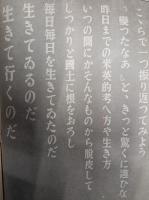 こらで一つ振り返つてみよう
變つたなあ――と、きつと驚くに違ひな
昨日までの米英的考へ方や生き方
いつの間にかそんなものから脱皮して
しつかりと國土に根をおろし
毎日毎日を生きてゐたのだ
生きてゐるのだ
生きて行くのだ